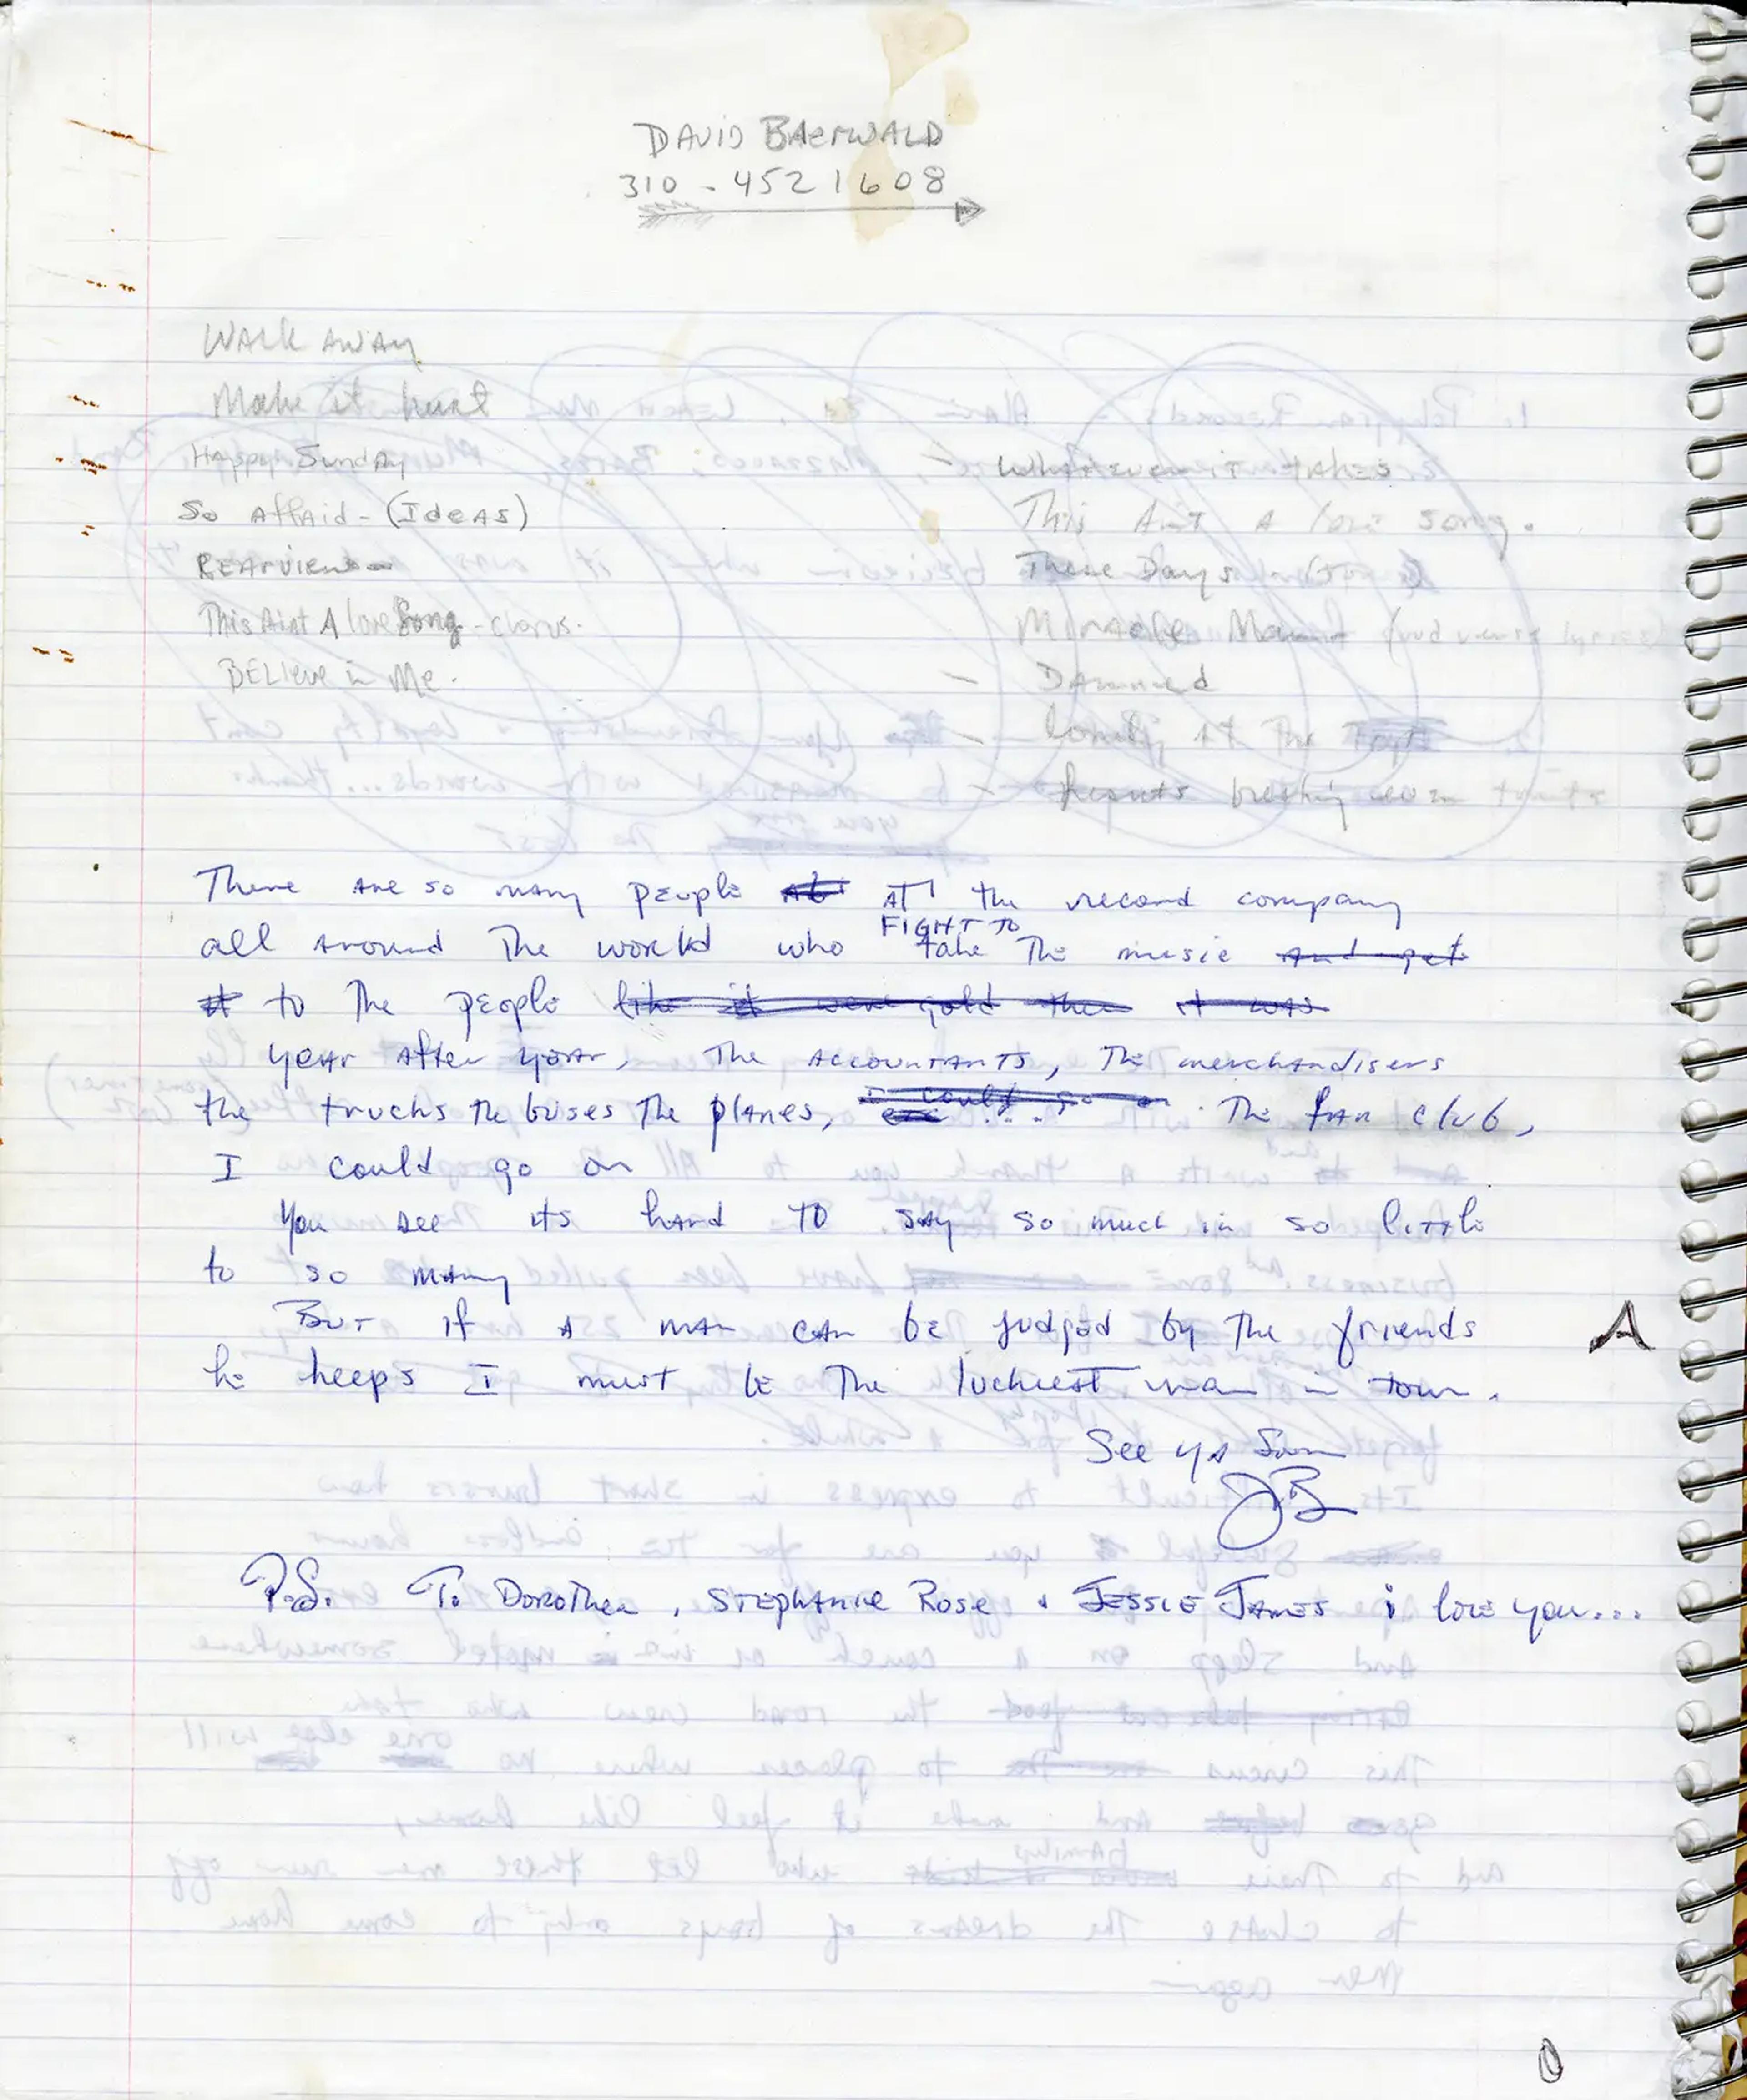 DAVID BAERWALD
310 - 4521608
WALK AWAY
Make it hurt
Happy Sunday
So AffAid - (IdeAS)
REArview
This Aint A love Song - chorus.
BELIeve in Me.
- Whatever it takes
This Ain't A love song.
These Days
Miracle Man
- Damned
- lonely At The Top
There Are so many people At AT the record company
all Around The world who FIGHT TO take The music And get
it to The people like it were gold then it was
year After year, The Accountants, The merchandisers
the trucks the buses The planes, I could go on etc ... The fAn club,
I could go on
You see its hard TO say so much in so little
to so many
But if A man can be judged by The friends
he keeps I must be The luckiest man in town.
See ya Soon
JB
P.S. To Dorothea, Stephanie Rose & Jessie James i love you...
A
0